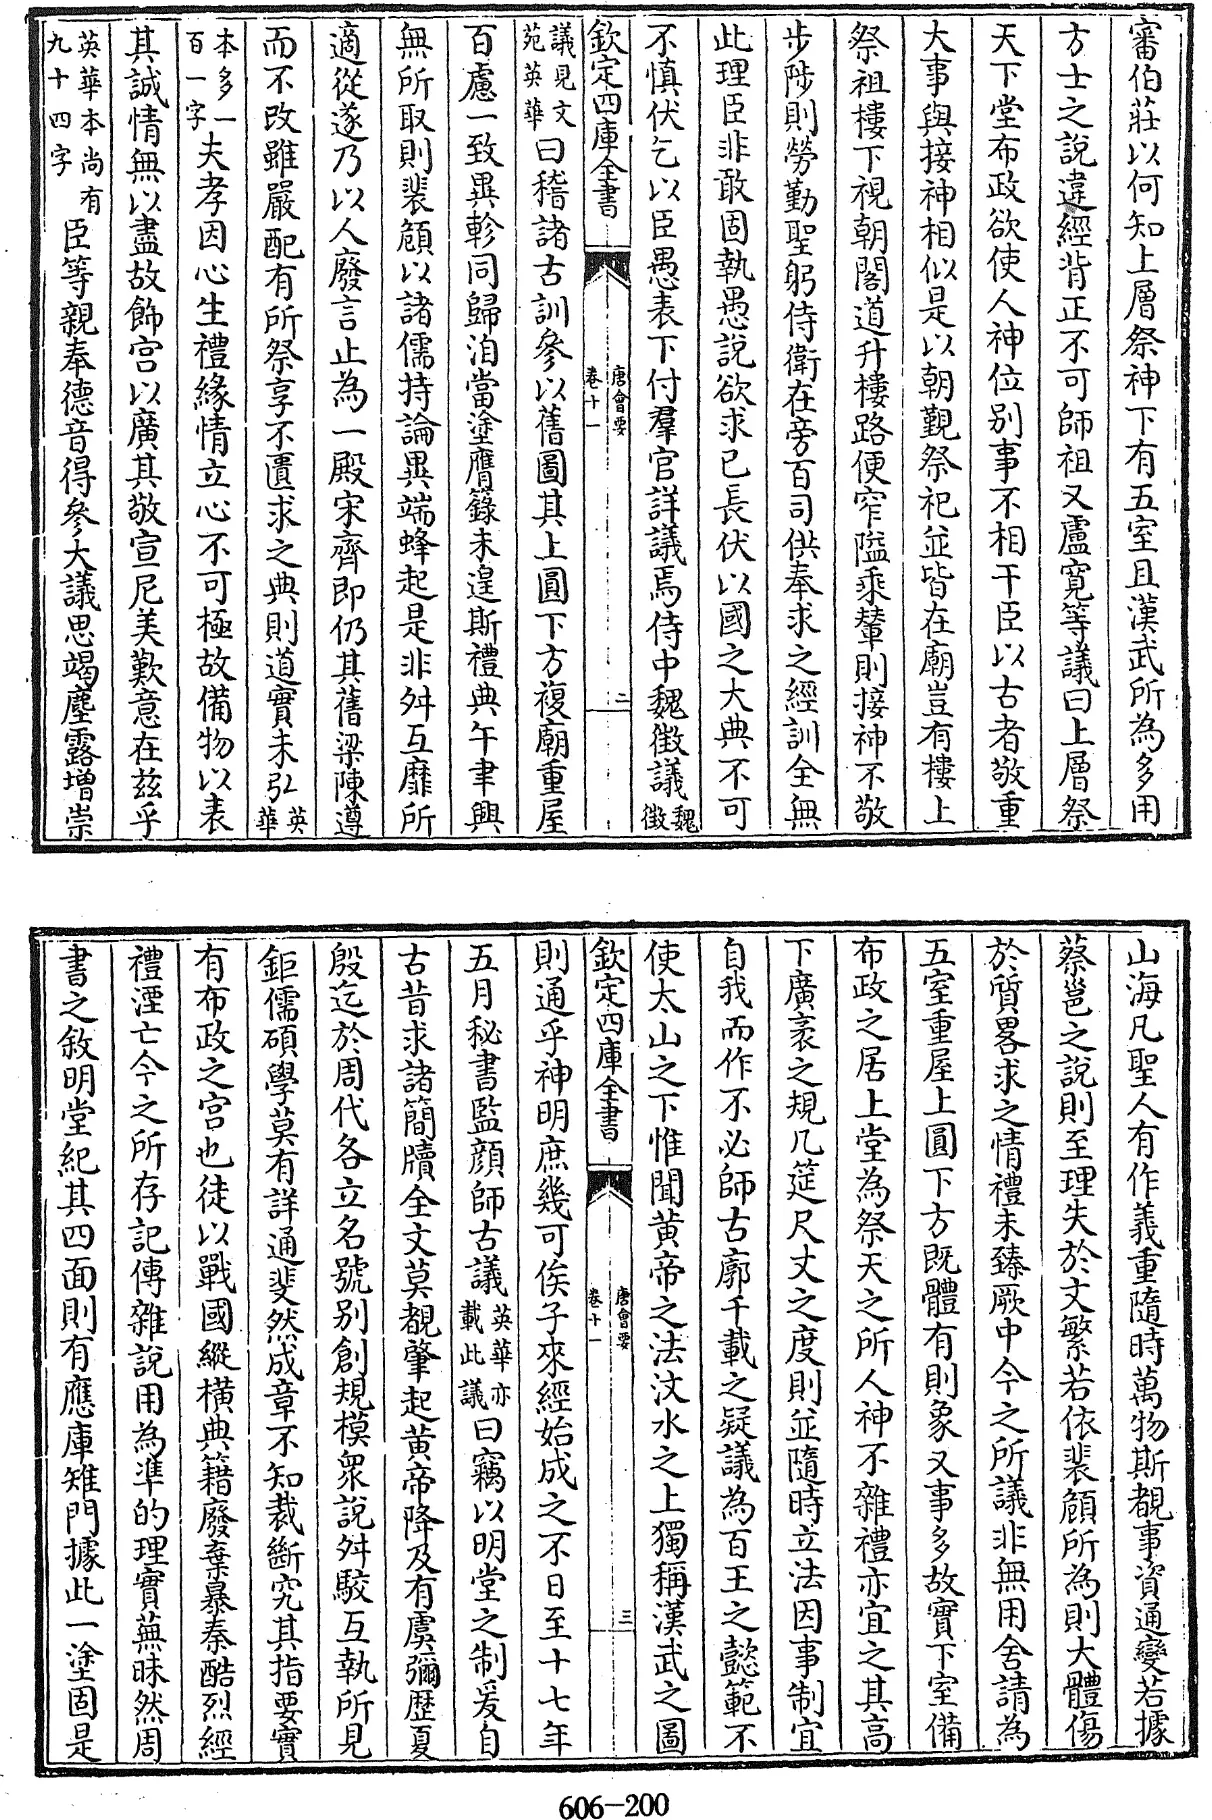 審伯莊以何知上層祭神下有五室且漢武所為多用
方士之說違經背正不可師祖又盧寬等議曰上層祭
天下堂布政欲使人神位別事不相干臣以古者敬重
大事與接神相似是以朝覲祭祀並皆在廟豈有樓上
祭祖樓下視朝閣道升樓路便窄隘乘輦則接神不敬
步陟則勞勤聖躬侍衛在旁百司供奉求之經訓全無
此理臣非敢固執愚說欲求已長伏以國之大典不可
不慎伏乞以臣愚表下付羣官詳議焉侍中魏徵議魏徵
欽定四庫全書
唐會要
卷十一
二
議見文苑英華曰稽諸古訓參以舊圖其上圓下方複廟重屋
百慮一致異軫同歸洎當塗膺籙未遑斯禮典午聿興
無所取則裴頠以諸儒持論異端蜂起是非舛互靡所
適從遂乃以人廢言止為一殿宋齊即仍其舊梁陳遵
而不改雖嚴配有所祭享不匱求之典則道實未弘英華
本多一百一字夫孝因心生禮緣情立心不可極故備物以表
其誠情無以盡故飾宮以廣其敬宣尼美歎意在茲乎
英華本尚有九十四字臣等親奉德音得參大議思竭塵露增崇
山海凡聖人有作義重隨時萬物斯覩事資通變若據
蔡邕之說則至理失於文繁若依裴頠所為則大體傷
於質畧求之情禮未臻厥中今之所議非無用舍請為
五室重屋上圓下方既體有則象又事多故實下室備
布政之居上堂為祭天之所人神不雜禮亦宜之其高
下廣袤之規几筵尺丈之度則並隨時立法因事制宜
自我而作不必師古廓千載之疑議為百王之懿範不
使太山之下惟聞黃帝之法汶水之上獨稱漢武之圖
欽定四庫全書
唐會要
卷十一
三
則通乎神明庶幾可俟子來經始成之不日至十七年
五月秘書監顏師古議英華亦載此議曰竊以明堂之制爰自
古昔求諸簡牘全文莫覩肇起黃帝降及有虞彌歷夏
殷迄於周代各立名號別創規模眾說舛駁互執所見
鉅儒碩學莫有詳通斐然成章不知裁斷究其指要實
有布政之宮也徒以戰國縱橫典籍廢棄暴秦酷烈經
禮湮亡今之所存記傳雜說用為準的理實蕪昧然周
書之敘明堂紀其四面則有應庫雉門據此一塗固是
606-200